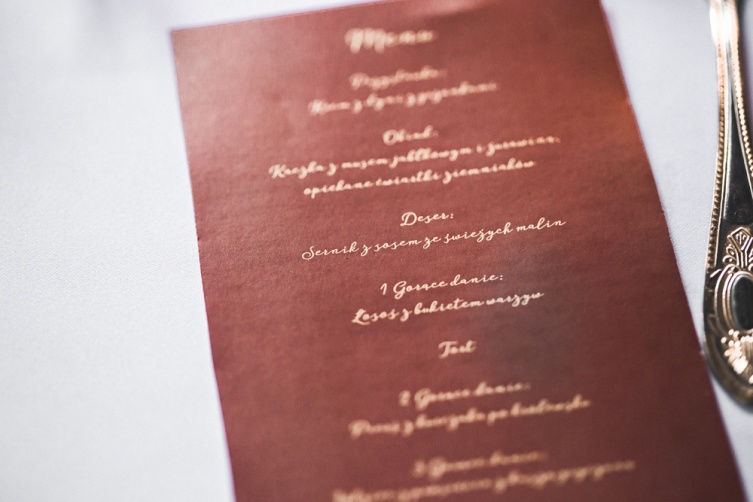 Menu
Przystawka:
Krem z dyni z grzankami
Obiad:
Kaczka z musem jabłkowym i żurawiną,
opiekane ćwiartki ziemniaków
Deser:
Sernik z sosem ze świeżych malin
1 Gorące danie:
Łosoś z bukietem warzyw
Tort
2 Gorące danie:
z kurczaka po
3 Gorące danie: